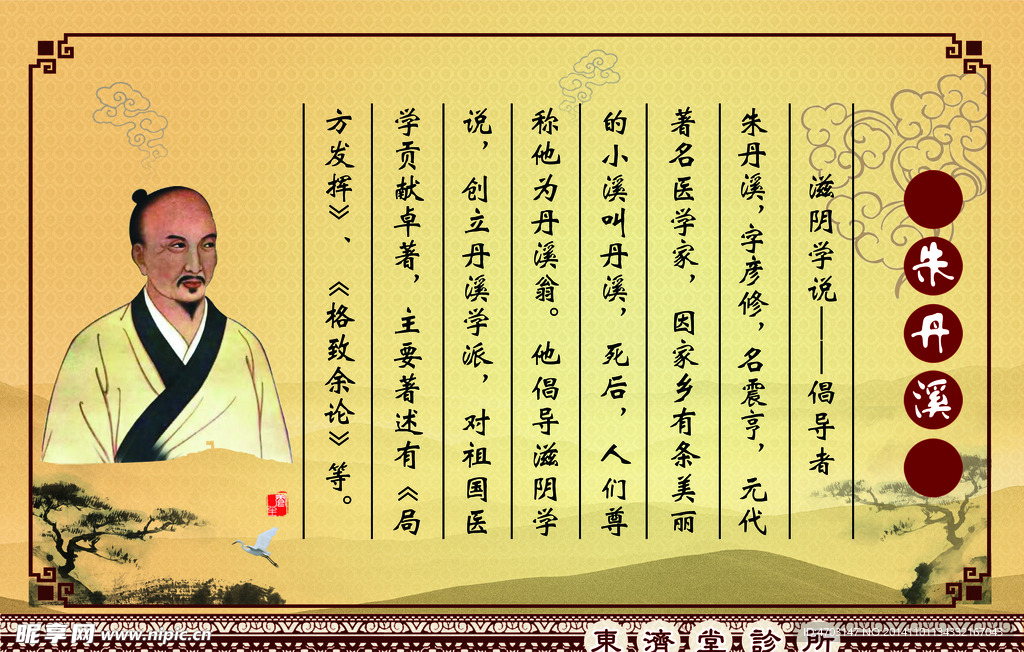 朱丹溪
滋阴学说——倡导者
朱丹溪，字彦修，名震亨，元代
著名医学家，因家乡有条美丽
的小溪叫丹溪，死后，人们尊
称他为丹溪翁。他倡导滋阴学
说，创立丹溪学派，对祖国医
学贡献卓著，主要著述有《局
方发挥》、《格致余论》等。
東濟堂診所
昵享网 www.nipic.cn